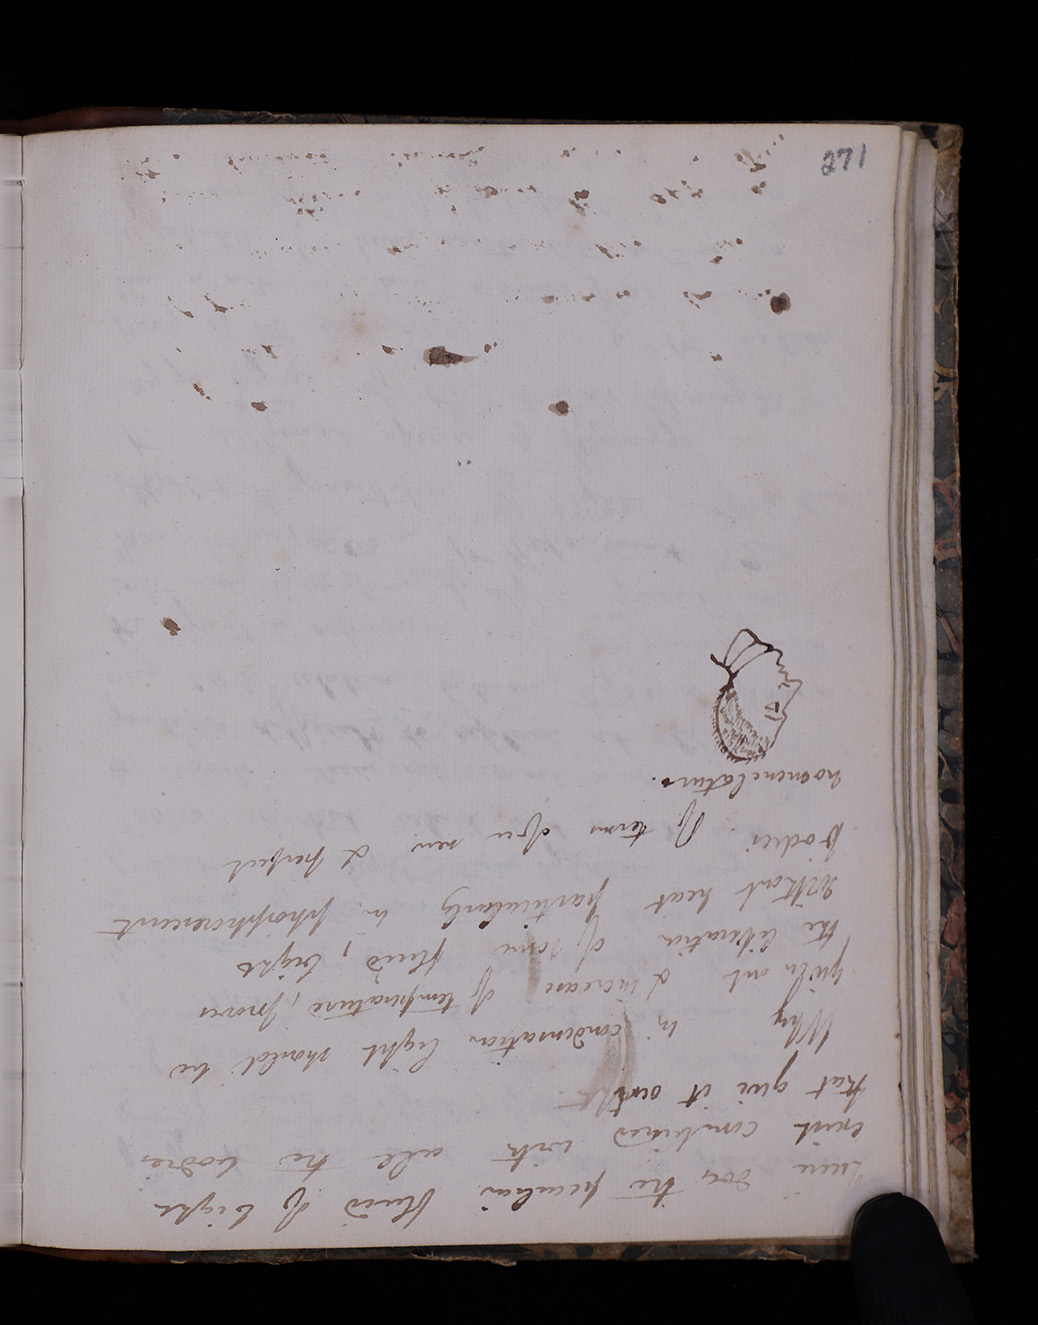 271
does the peculiar fluid of Light
exist combined with all the bodies
that give it out
Why in condensation light should be
given out & increase of temperature, proves
the liberation of some fluid, Light
without heat particularly in phosphorescent
bodies Of terms of a new & perfect
nomenclature.